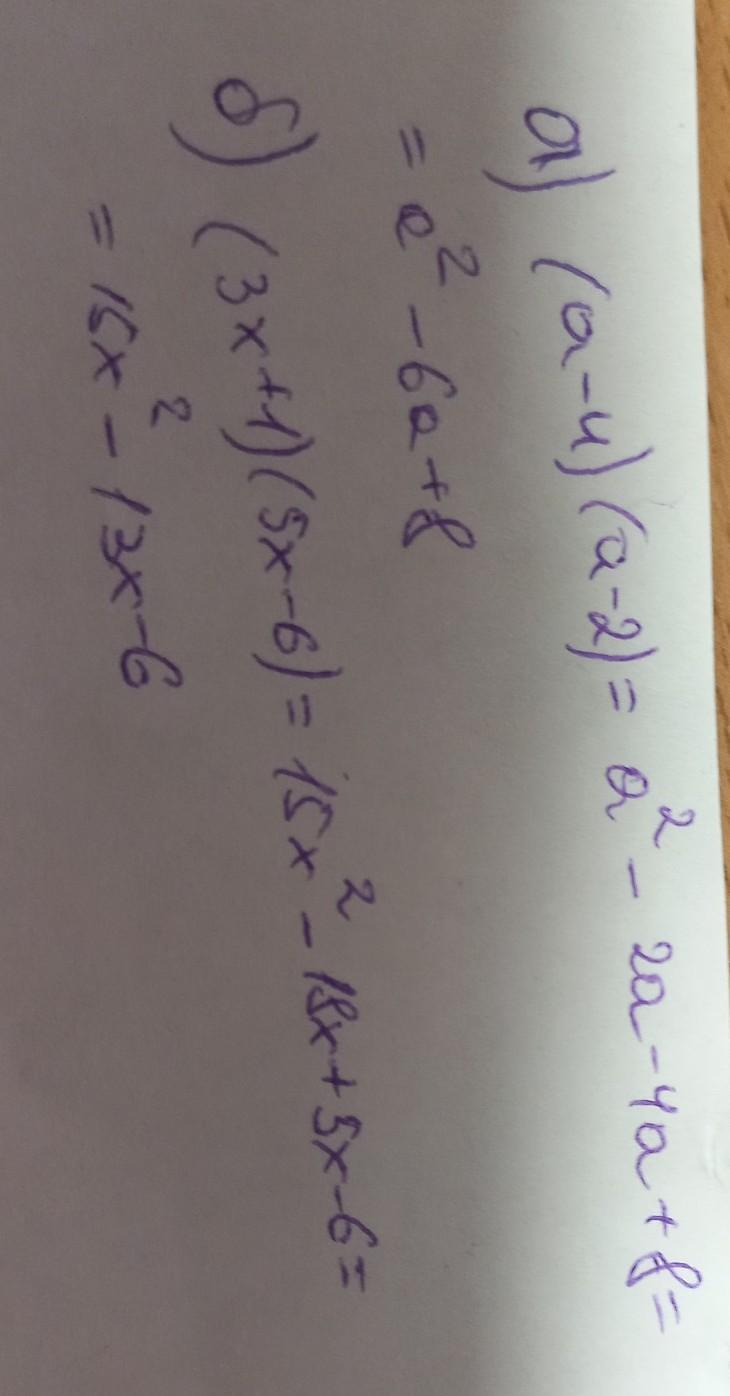 а) (a-4)(a-2) = a² - 2a - 4a + 8 =
= a² - 6a + 8
б) (3x+1)(5x-6) = 15x² - 18x + 5x - 6 =
= 15x² - 13x - 6